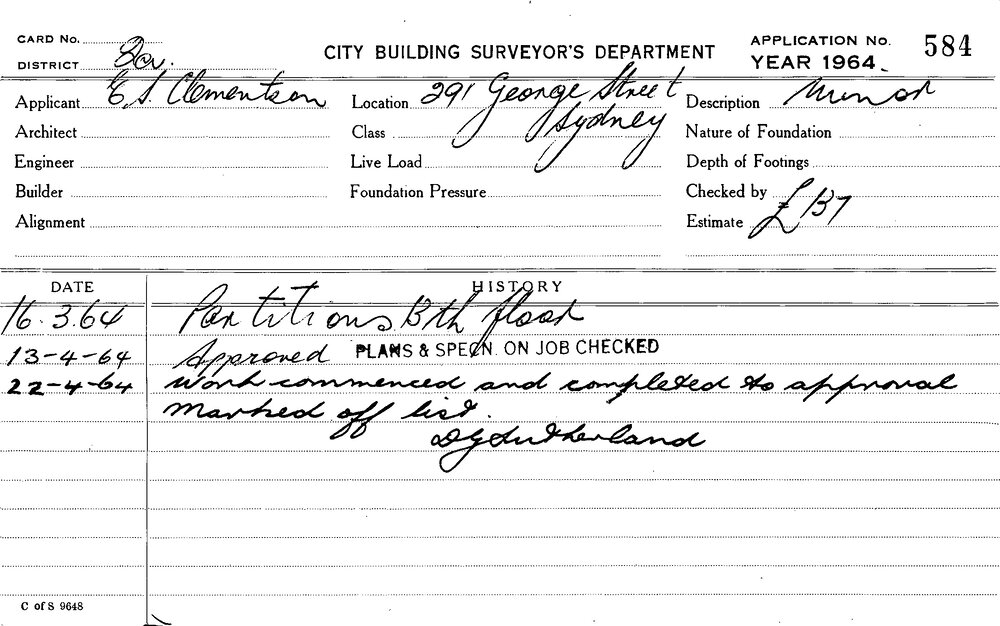 CARD No.
CITY BUILDING SURVEYOR'S DEPARTMENT
APPLICATION No. 584
DISTRICT
YEAR 1964
Applicant E. S. Clementson
Location 291 George Street
Sydney
Description Minor
Architect
Class
Nature of Foundation
Engineer
Live Load
Depth of Footings
Builder
Foundation Pressure
Checked by
Alignment
Estimate £137
DATE
HISTORY
16.3.64 Partitions 13th floor
13-4-64 Approved PLANS & SPECN. ON JOB CHECKED
22-4-64 Work commenced and completed to approval
Marked off list.
DG Sutherland
C of S 9648